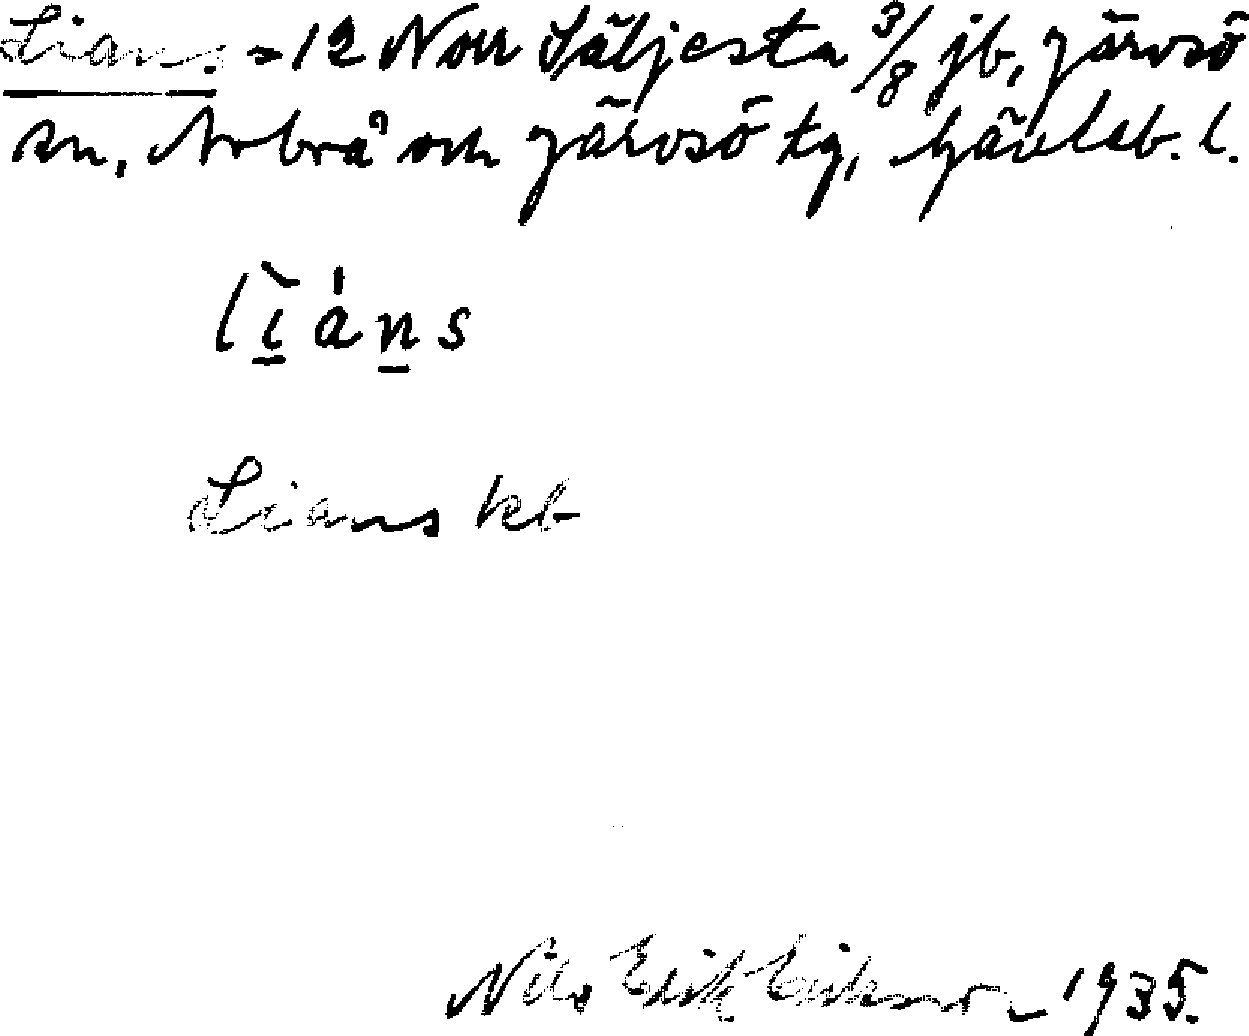 Lians = 12 Norr Säljesta 3/8 jb, Järvsö
sn, Arbrå och Järvsö tg, Gävleb. l.
lìáns
Lians kb
Nils Erik Eriksson 1935.